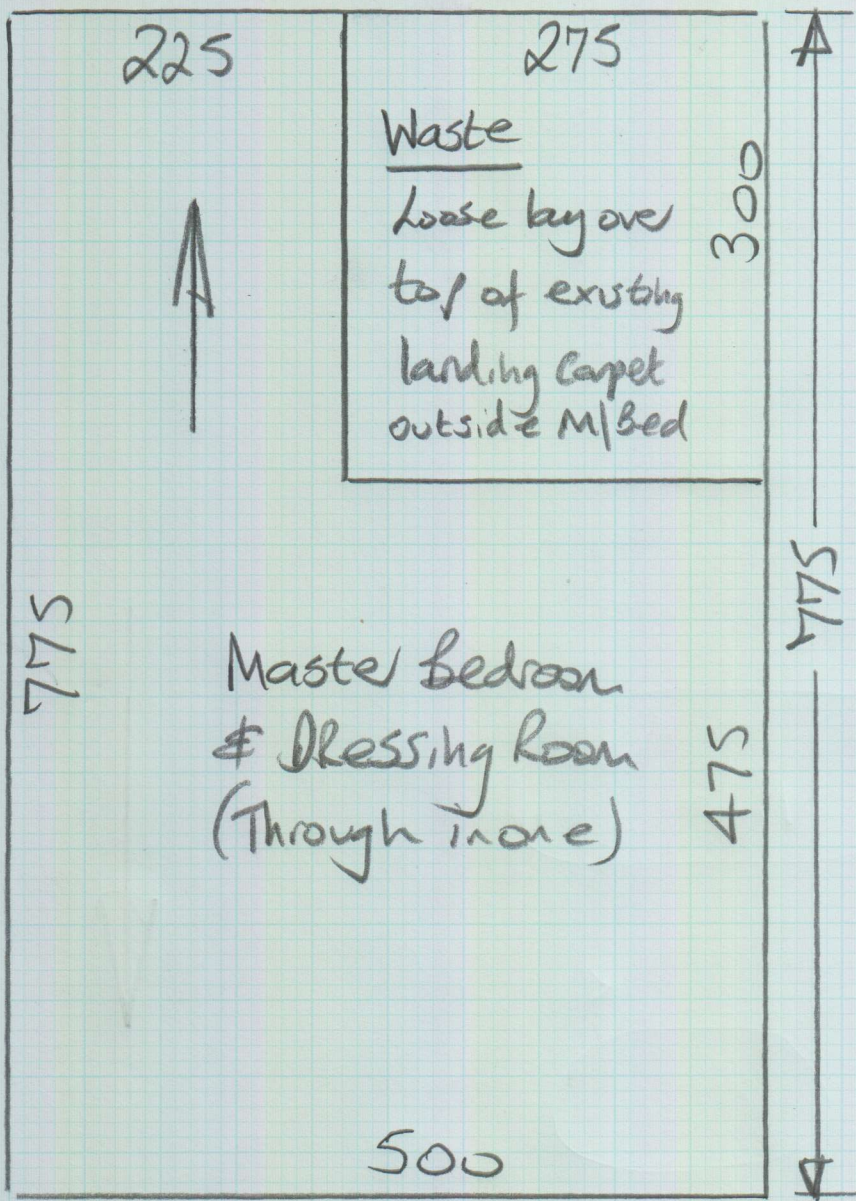 225
275
Waste
Loose lay over
top of existing
landing Carpet
outside M/Bed
300
775
775
Master Bedroom
& DRessing Room
(Through in one)
475
500